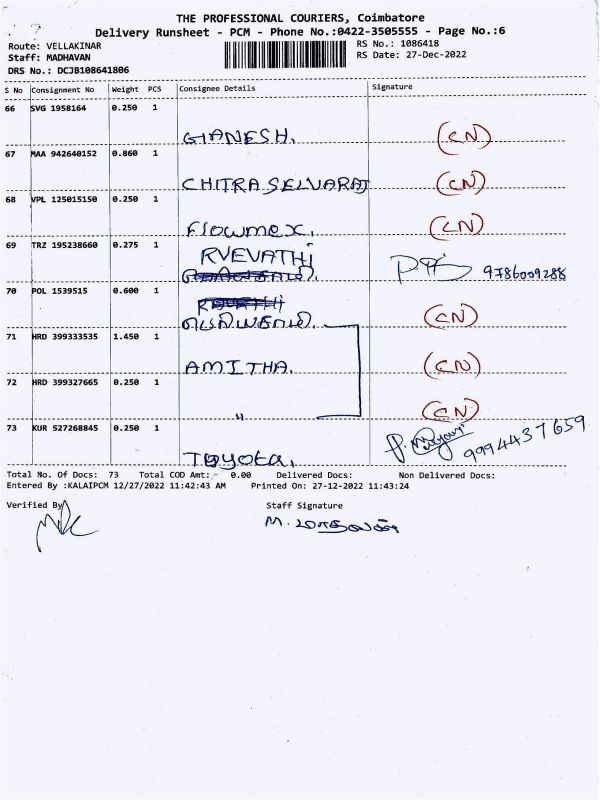 THE PROFESSIONAL COURIERS, Coimbatore
Delivery Runsheet - PCM - Phone No.:0422-3505555 - Page No.:6
Route: VELLAKINAR RS No.: 1086418
Staff: MADHAVAN RS Date: 27-Dec-2022
DRS No.: DCJB108641806
S No Consignment No Weight PCS Consignee Details Signature
66 SVG 1958164 0.250 1
GANESH. (CN)
67 MAA 942640152 0.860 1
CHITRA SELVARAJ (CN)
68 VPL 125015150 0.250 1
Flowmex. (CN)
69 TRZ 195238660 0.275 1
RVEVATHi
9786009288
70 POL 1539515 0.600 1
(CN)
71 HRD 399333535 1.450 1
AMITHA. (CN)
72 HRD 399327665 0.250 1
" (CN)
73 KUR 527268845 0.250 1
9994437659
Toyota.
Total No. Of Docs: 73 Total COD Amt: 0.00 Delivered Docs: Non Delivered Docs:
Entered By :KALAIPCM 12/27/2022 11:42:43 AM Printed On: 27-12-2022 11:43:24
Verified By Staff Signature